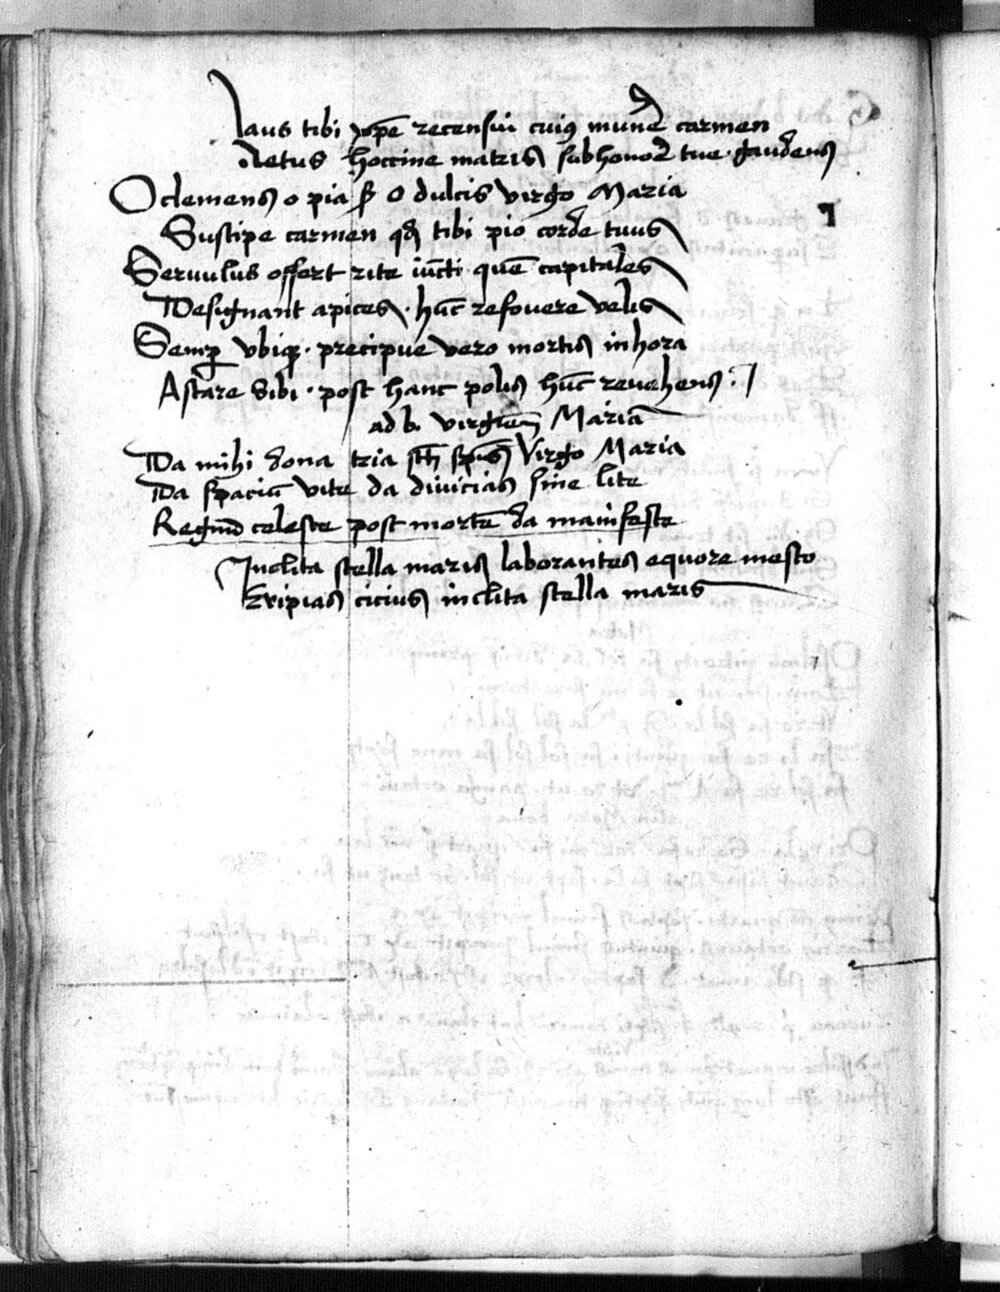 Laus tibi xpe recensui cuiꝯ mune carmen
Letus hoccine matris sub honore tue · gaudens
O clemens o pia O dulcis virgo Maria
Suscipe carmen qd tibi pio corde tuus
Seruulus offert rite iucti quem capitales
Designant apices · hūc refouere velis
Semp vbiqꝫ · precipue vero mortis in hora
Astare sibi · post hanc polis hūc reuehens
ad b. virginem Mariā
Da mihi dona tria Virgo Maria
Da spaciū vite da diuicias sine lite
Regnū celeste post mortē da manifeste
Inclita stella maris laborantes equore mesto
Eripias cicius inclita stella maris